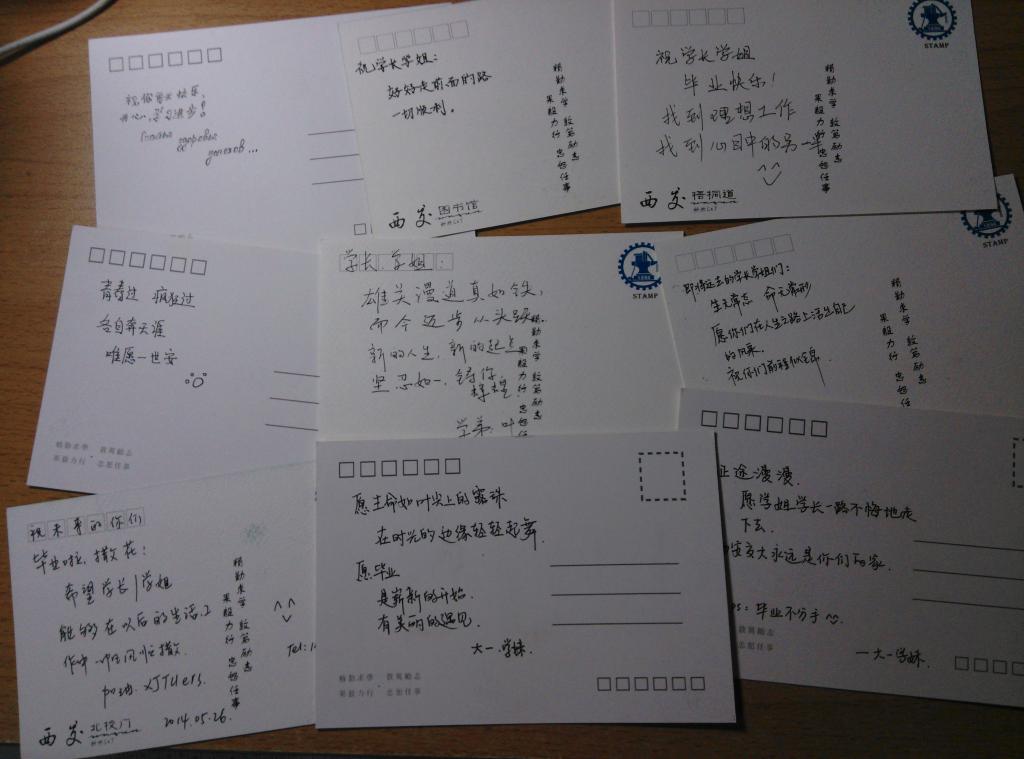 祝你前天快乐,
开心,学习进步!
Счастья
здоровья
успехов...
祝学长学姐:
好好走前面的路
一切顺利。
精勤求学 敦笃励志
果毅力行 忠恕任事
西交 图书馆
STAMP
祝学长学姐
毕业快乐!
找到理想工作
找到心目中的另一半
精勤求学 敦笃励志
果毅力行 忠恕任事
西交 梧桐道
青春过 疯狂过
各自奔天涯
唯愿一世安
精勤求學 敦篤勵志
果毅力行 忠恕任事
STAMP
学长、学姐:
雄关漫道真如铁,
而今迈步从头越。
新的人生,新的起点
坚忍如一,铸你
辉煌
学弟:叶
精勤求学 敦笃励志
果毅力行 忠恕任
STAMP
即将远去的学长学姐们:
生无常态 命无常形
愿你们在人生之路上活出自己
的风采。
祝你们前程似锦
精勤求学 敦笃励志
果毅力行 忠恕任
祝未来的你们
毕业啦,撒花:
希望学长/学姐
能够在以后的生活、工
作中一
加油、XJTUers.
精勤求学 敦笃励志
果毅力行 忠恕任事
Tel:1
西交 北校门 2014.05.26.
愿生命如叶尖上的露珠
在时光的边缘轻轻起舞.
愿毕业
是崭新的开始.
有美丽的遇见.
大一.学妹.
精勤求學 敦篤勵志
果毅力行 忠恕任事
征途漫漫
愿学姐学长一路不悔地走
下去.
安交大永远是你们的家.
ps:毕业不分手
一大一学妹.
敦篤勵志
忠恕任事